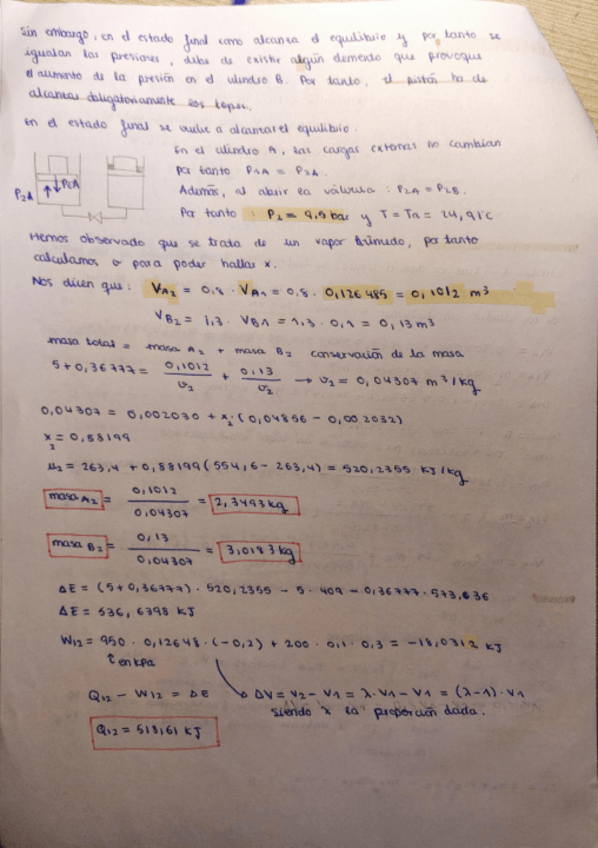 Sin embargo, en el estado final como alcanza el equilibrio y por tanto se
igualan las presiones, debe de existir algún elemento que provoque
el aumento de la presión en el cilindro B. Por tanto, el pistón ha de
alcanzar obligatoriamente los topes.
En el estado final se vuelve a alcanzar el equilibrio.
En el cilindro A, las cargas externas no cambian
por tanto P1A = P2A.
Además, al abrir la válvula: P2A = P2B.
Por tanto: P2 = 9,5 bar y T = Ta = 24,91°C
P2A
P0A
Hemos observado que se trata de un vapor húmedo, por tanto
calculamos v para poder hallar x.
Nos dicen que: VA2 = 0,8 · VA1 = 0,8 · 0,126485 = 0,1012 m³
VB2 = 1,3 · VB1 = 1,3 · 0,1 = 0,13 m³
masa total = masa A2 + masa B2 conservación de la masa
5 + 0,36777 = 0,1012/v2 + 0,13/v2 → v2 = 0,04307 m³/kg
0,04307 = 0,002030 + x2 · (0,04856 - 0,002032)
x2 = 0,88199
u2 = 263,4 + 0,88199 (554,6 - 263,4) = 520,2355 KJ/kg
masa A2 = 0,1012/0,04307 = 2,3493 kg
masa B2 = 0,13/0,04307 = 3,0183 kg
ΔE = (5 + 0,36777) · 520,2355 - 5 · 409 - 0,36777 · 573,636
ΔE = 536,6398 KJ
W12 = 950 · 0,12648 · (-0,2) + 200 · 0,1 · 0,3 = -18,0312 KJ
↑ en kPa
Q12 - W12 = ΔE
ΔV = V2 - V1 = λ · V1 - V1 = (λ-1) · V1
siendo λ la proporción dada.
Q12 = 518,61 KJ